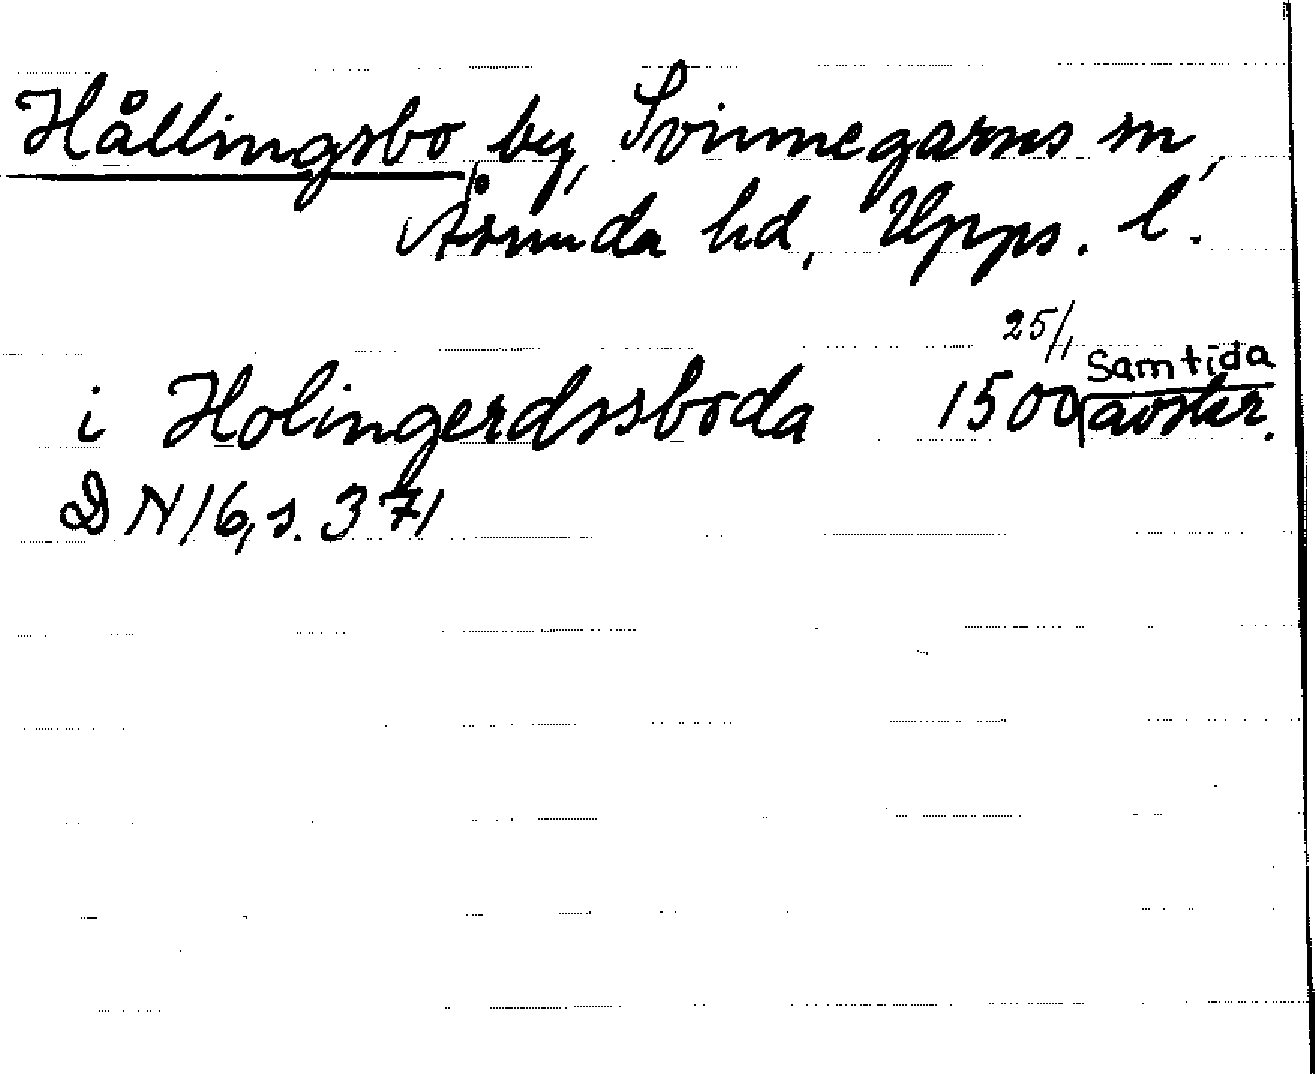 Hållingsbo by, Svinnegarns sn,
Åsunda hd, Upps. l.
i Holingerdssboda 25/1 1500 Samtida avskr.
DN 16, s. 371